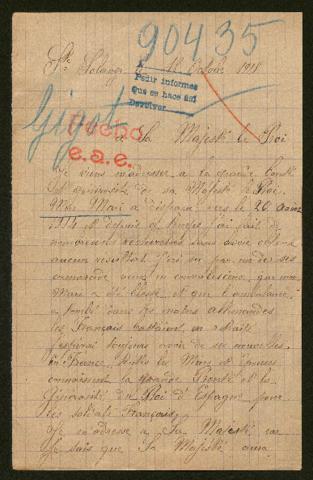 90435
Ste Solange le 12 Octobre 1918
Pedir informes
Que se hace así
Devolver
Gigot
bueno
e.a.e.
a Sa Majesté le Roi
Je viens m'adresser a la grande bonté
et Générosité de sa Majesté le Roi
Mon Mari a disparu vers le 20 août
1914 et depuis ce temps j'ai fait de
nombreuses recherches sans avoir obtenu
aucun resultat J'ai su par un de ses
camarade venu en convalescence que mon
Mari a été blessé et que l'ambulance
a tombé dans les mains allemandes
les Français battaient en retraite
J'esperai toujours avoir de ses nouvelles
en France toutes les Mères et épouses
connaissent la grande Bonté et la
Générosité du Roi d'Espagne pour
les soldats Français
Je m'adresse a Sa Majesté car
Je sais que Sa Majesté aura